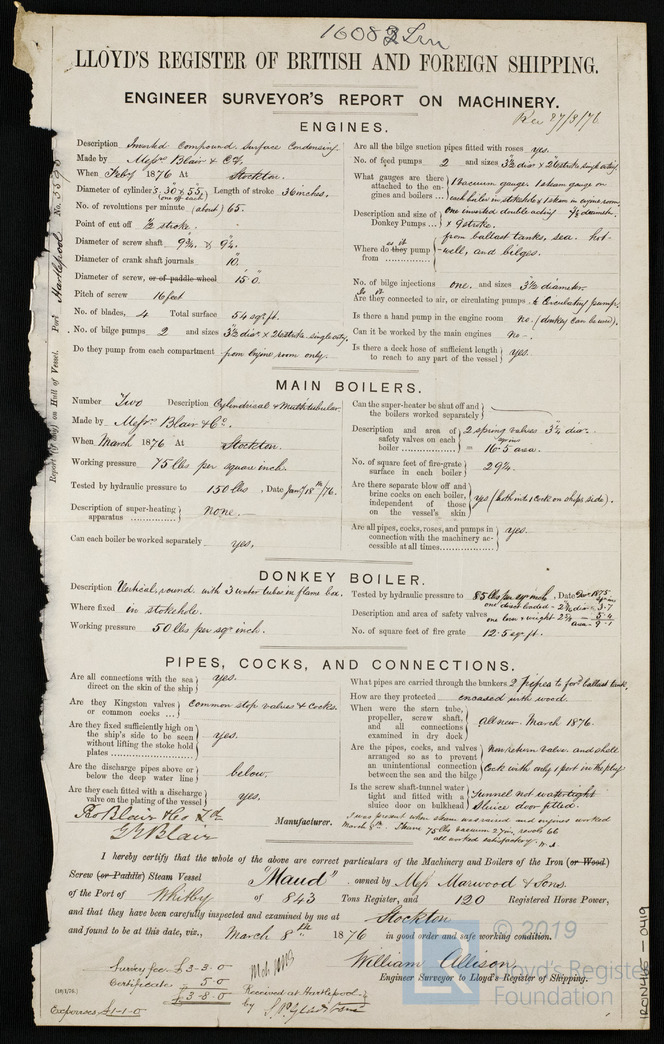 16082 Irn
LLOYD'S REGISTER OF BRITISH AND FOREIGN SHIPPING.
ENGINEER SURVEYOR'S REPORT ON MACHINERY.
Rec 27/3/76
ENGINES.
Description Inverted Compound Surface Condensing.
Made by Messrs Blair & Co.
When Feby 1876 At Stockton.
Diameter of cylinders 30" & 55" (one of each) Length of stroke 36 inches.
No. of revolutions per minute (about) 65.
Point of cut off 1/2 stroke.
Diameter of screw shaft 9 3/4. & 9 1/4.
Diameter of crank shaft journals 10".
Diameter of screw, or of paddle wheel 15' 0".
Pitch of screw 16 feet
No. of blades, 4 Total surface 54 sqr ft.
No. of bilge pumps 2 and sizes 3 1/2 diar x 26 stroke single actg.
Do they pump from each compartment from Engine room only.
Are all the bilge suction pipes fitted with roses yes.
No. of feed pumps 2 and sizes 3 1/2 diar x 26 stroke single acting
What gauges are there attached to the engines and boilers ... 1 Vacuum gauge. 1 steam gauge on each boiler in stokehole & 1 steam in engine room,
Description and size of Donkey Pumps ... One inverted double acting diametr. x 9 stroke.
Where do they pump from as it from ballast tanks, sea. hot-well, and bilges.
No. of bilge injections one. and sizes 3 1/2 diameter.
Are they connected to air, or circulating pumps. to Circulating pumps.
Is there a hand pump in the engine room no. (donkey can be used).
Can it be worked by the main engines no -.
Is there a deck hose of sufficient length to reach to any part of the vessel yes.
Report (if any) on Hull of Vessel. Port Hartlepool No.
MAIN BOILERS.
Number Two Description Cylindrical & Multitubular.
Made by Messrs Blair & Co.
When March 1876 At Stockton.
Working pressure 75 lbs per square inch.
Tested by hydraulic pressure to 150 lbs, Date Jany 18th/76.
Description of super-heating apparatus none. -
Can each boiler be worked separately yes,
Can the super-heater be shut off and the boilers worked separately
Description and area of safety valves on each boiler 2 spring valves 3 1/4 diar = 16.5 area.
No. of square feet of fire-grate surface in each boiler 29 3/4.
Are there separate blow off and brine cocks on each boiler, independent of those on the vessel's skin yes (both with 1 Cock on ships side).
Are all pipes, cocks, roses, and pumps in connection with the machinery accessible at all times yes.
DONKEY BOILER.
Description Vertical, round, with 3 water tubes in flame box.
Where fixed in stokehole.
Working pressure 50 lbs per sqr inch.
Tested by hydraulic pressure to 85 lbs per sqr inch, Date Decr 1875
Description and area of safety valves
No. of square feet of fire grate 12.5 sqr ft.
PIPES, COCKS, AND CONNECTIONS.
Are all connections with the sea direct on the skin of the ship yes.
Are they Kingston valves or common cocks ... Common stop valves & cocks.
Are they fixed sufficiently high on the ship's side to be seen without lifting the stoke hold plates yes.
Are the discharge pipes above or below the deep water line below.
Are they each fitted with a discharge valve on the plating of the vessel yes,
What pipes are carried through the bunkers 2 pipes to ford ballast tank,
How are they protected encased with wood.
When were the stern tube, propeller, screw shaft, and all connections examined in dry dock All new. March 1876.
Are the pipes, cocks, and valves arranged so as to prevent an unintentional connection between the sea and the bilge non return valve. and shell Cock with only 1 port in the plug
Is the screw shaft-tunnel water tight and fitted with a sluice door on bulkhead Tunnel not watertight Sluice door fitted.
Pro Blair & Co Ld
G Y Blair
Manufacturer.
I was present when steam was raised and engines worked March 8th. Steam 75 lbs vacuum 27 in, revols 66 all worked satisfactory.
I hereby certify that the whole of the above are correct particulars of the Machinery and Boilers of the Iron (or Wood)
Screw (or Paddle) Steam Vessel "Maud" owned by Messrs Marwood & Sons.
of the Port of Whitby of 843 Tons Register, and 120 Registered Horse Power,
and that they have been carefully inspected and examined by me at Stockton
and found to be at this date, viz., March 8th 1876 in good order and safe working condition.
William Allison
Engineer Surveyor to Lloyd's Register of Shipping.
Survey fee £3-3-0
Certificate 5-0
£3-8-0
Received at Hartlepool
by
Expenses £1-1-0
© 2019
Lloyd's Register
Foundation
IRON466 - 0419